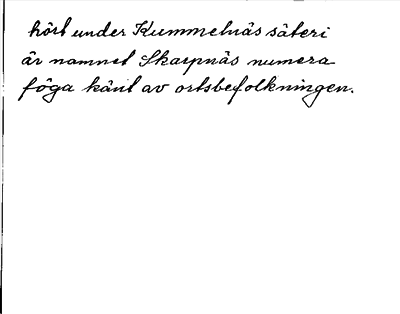 hört under Kummelnäs säteri
är namnet Skarpnäs numera
föga känt av ortsbefolkningen.